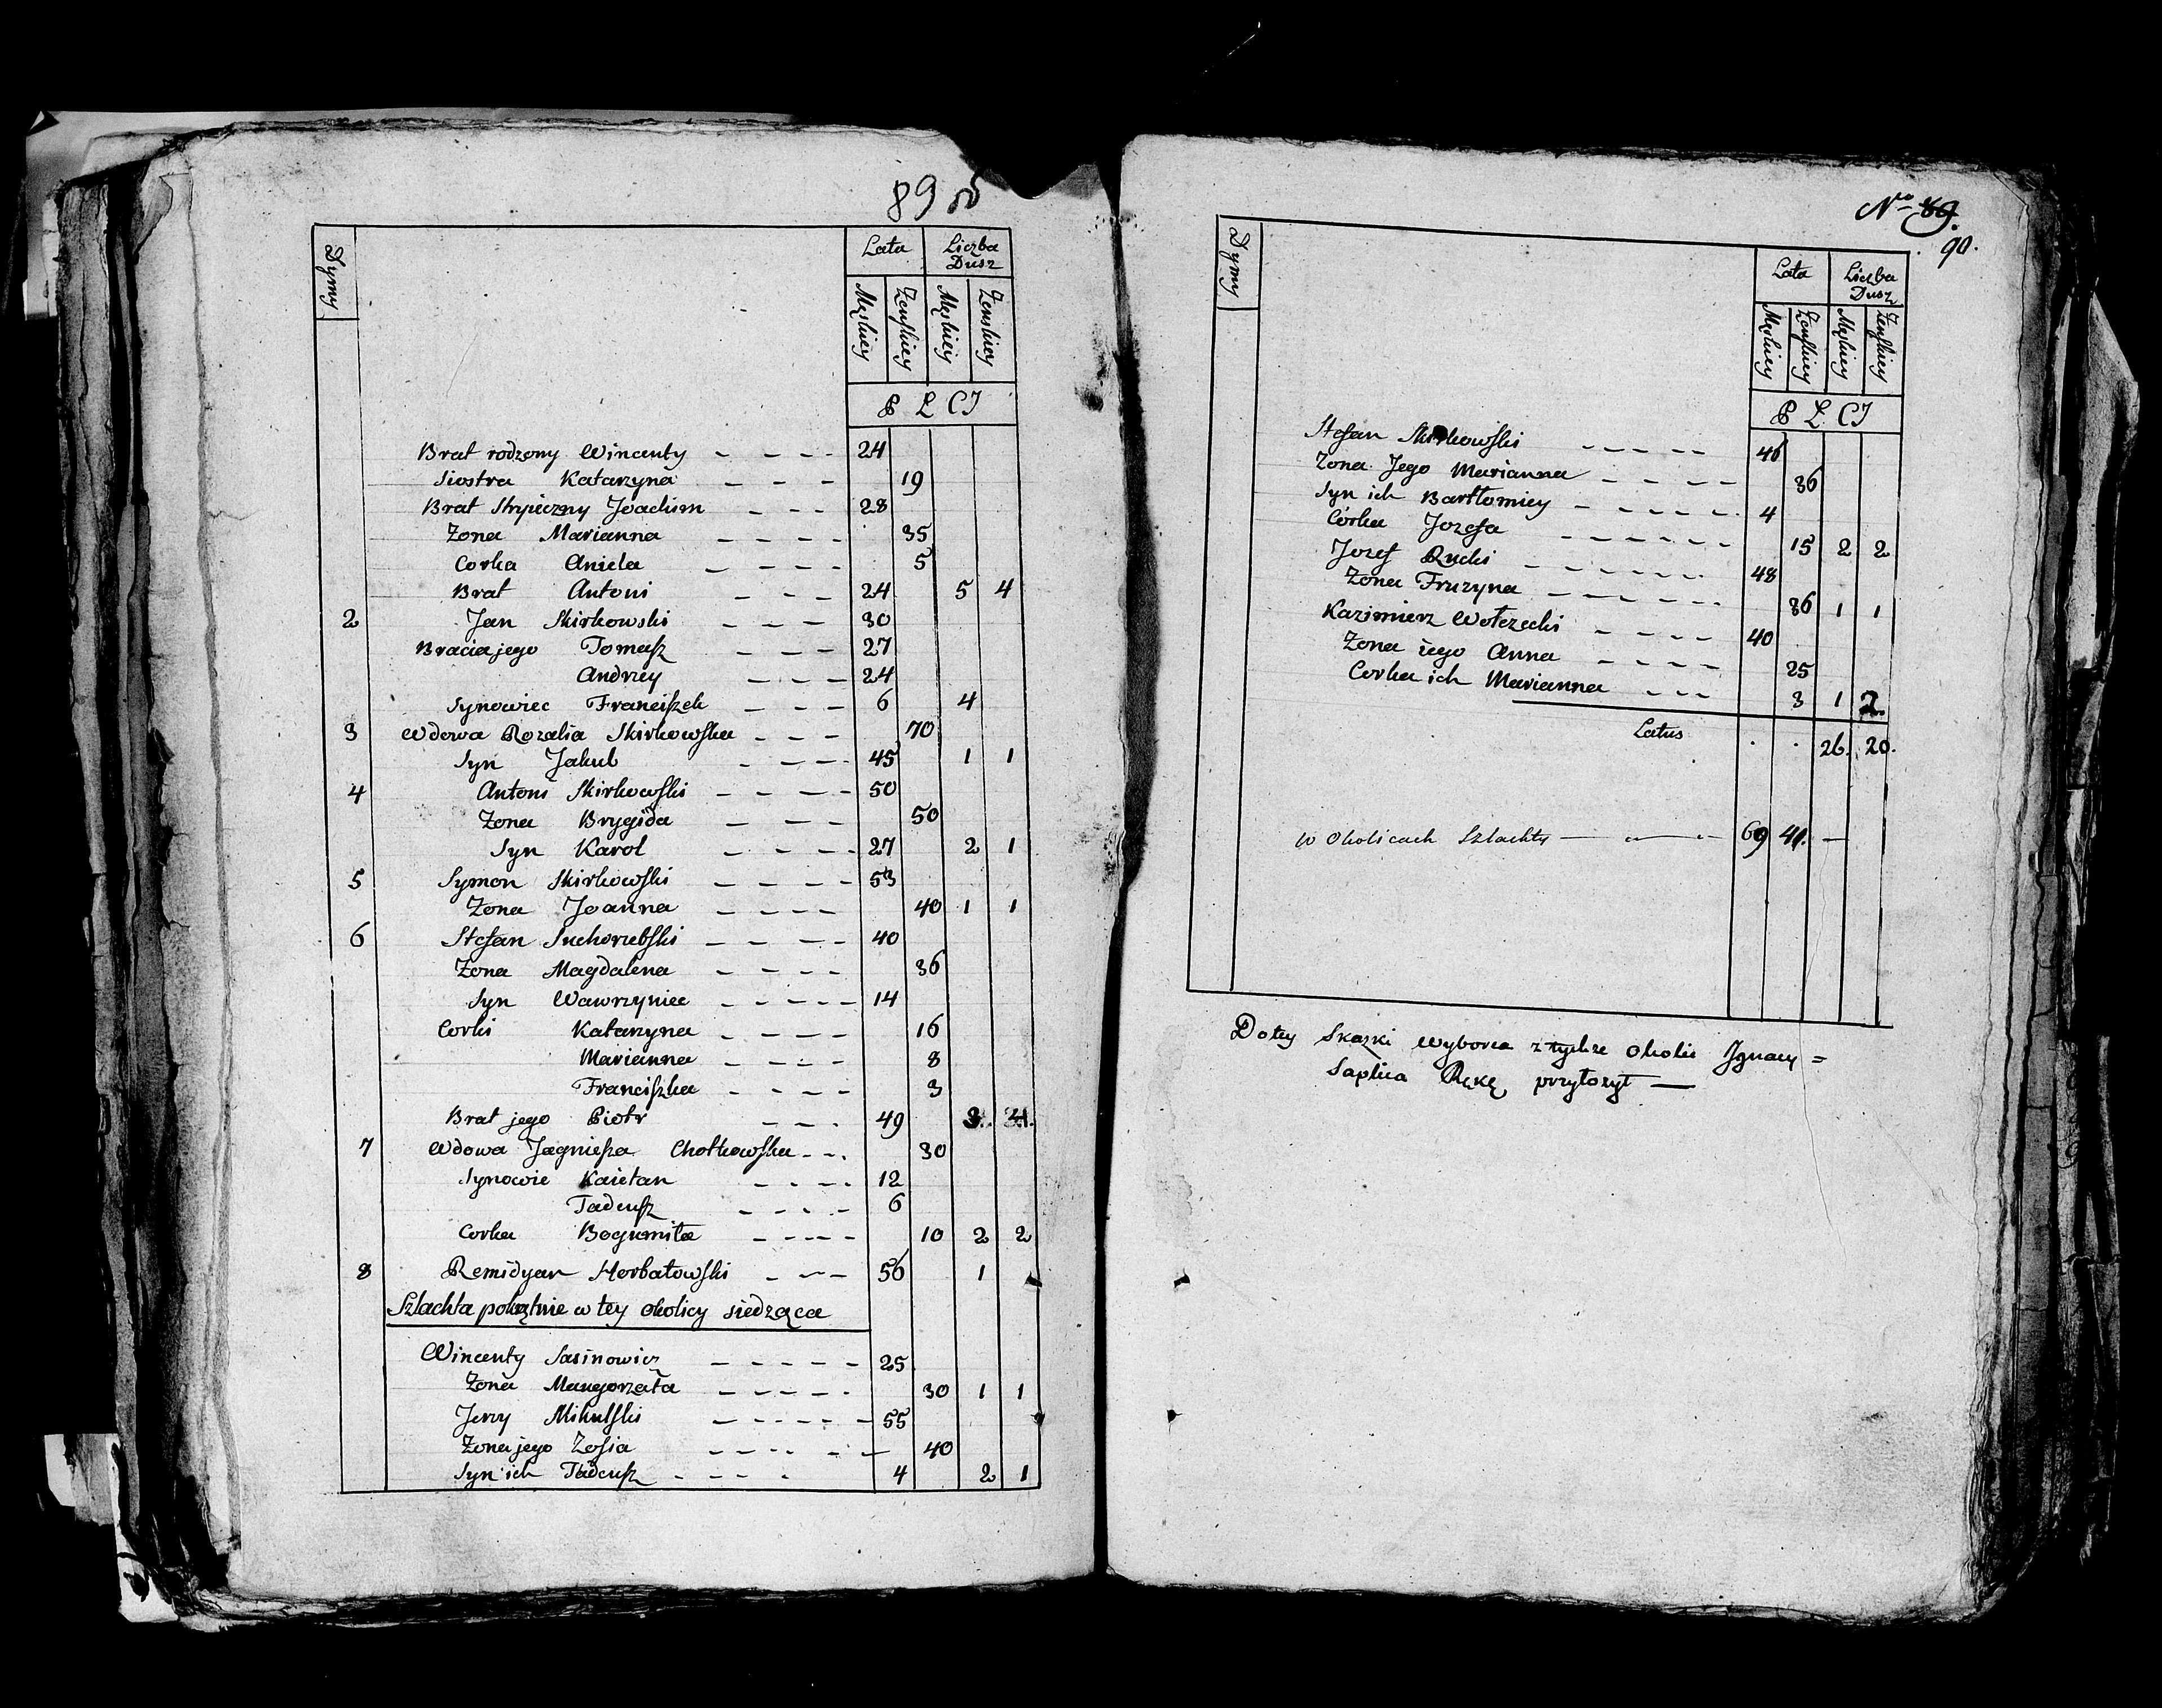 89 об
Dymy
Lata Liczba Dusz
Męskiey Żeńskiey Męskiey Żenskiey
P Ł CI
Brat rodzony Wincenty - - - - 24
Siostra Katarzyna - - - 19
Brat Stryieczny Joachim - - - 28
Zona Marianna - - - - 35
Corka Aniela - - - - 5
Brat Antoni - - - 24 5 4
2 Jan Skirkowski - - - 30
Bracia jego Tomasz - - - 27
Andrzey - - - - 24
Synowiec Franciszek - - - 6 4
3 Wdowa Rozalia Skirkowska - - - 70
Syn Jakub - - - - 45 1 1
4 Antoni Skirkowski - - - - 50
Zona Brygida - - - 50
Syn Karol - - - - 27 2 1
5 Symon Skirkowski - - - - 53
Zona Joanna - - - - 40 1 1
6 Stefan Suchorubski - - - - 40
Zona Magdalena - - - - 36
Syn Wawrzyniec - - - - - 14
Corki Katarzyna - - - - 16
Marianna - - - - 8
Franciszka - - - - 3
Brat jego Piotr - - - 49 3.
7 Wdowa Jagniesza Chotkowska - - . 30
Synowie Kaietan - - - - 12
Tadeusz - - - - 6
Corka Bogumiła - - - - 10 2 2
8 Remidyan Horbatowski - - - 56 1
Szlachta pokątnie w tey okolicy siedząca
Wincenty Sasinowicz - - - - - 25
Zona Maugorzata - - - - - 30 1 1
Jerzy Mikulski - - - - - - 55
Zona jego Zofia - - - - - - 40
Syn ich Tadeusz - - - - 4 2 1
No 89.
90.
Dymy
Lata Liczba Dusz
Męskiey Żeńskiey Męskiey Żeńskiey
P Ł CI
Stefan Skirkowski - - - - - 46
Zona Jego Marianna - - - - - 36
Syn ich Bartłomiey - - - - - 4
Córka Jozefa - - - - - - 15 2 2
Jozef Rucki - - - - - - 48
Zona Fruzyna - - - - - - 36 1 1
Kazimierz Wołczecki - - - - 40
Zona iego Anna - - - - 25
Corka ich Marianna - - - 3 1 2.
Latus . . 26. 20.
w Okolicach Szlachty — — 69 41. —
Do tey Skazki wyborca z tychże okolic Jgnacy =
Saplica Rękę przyłożył —